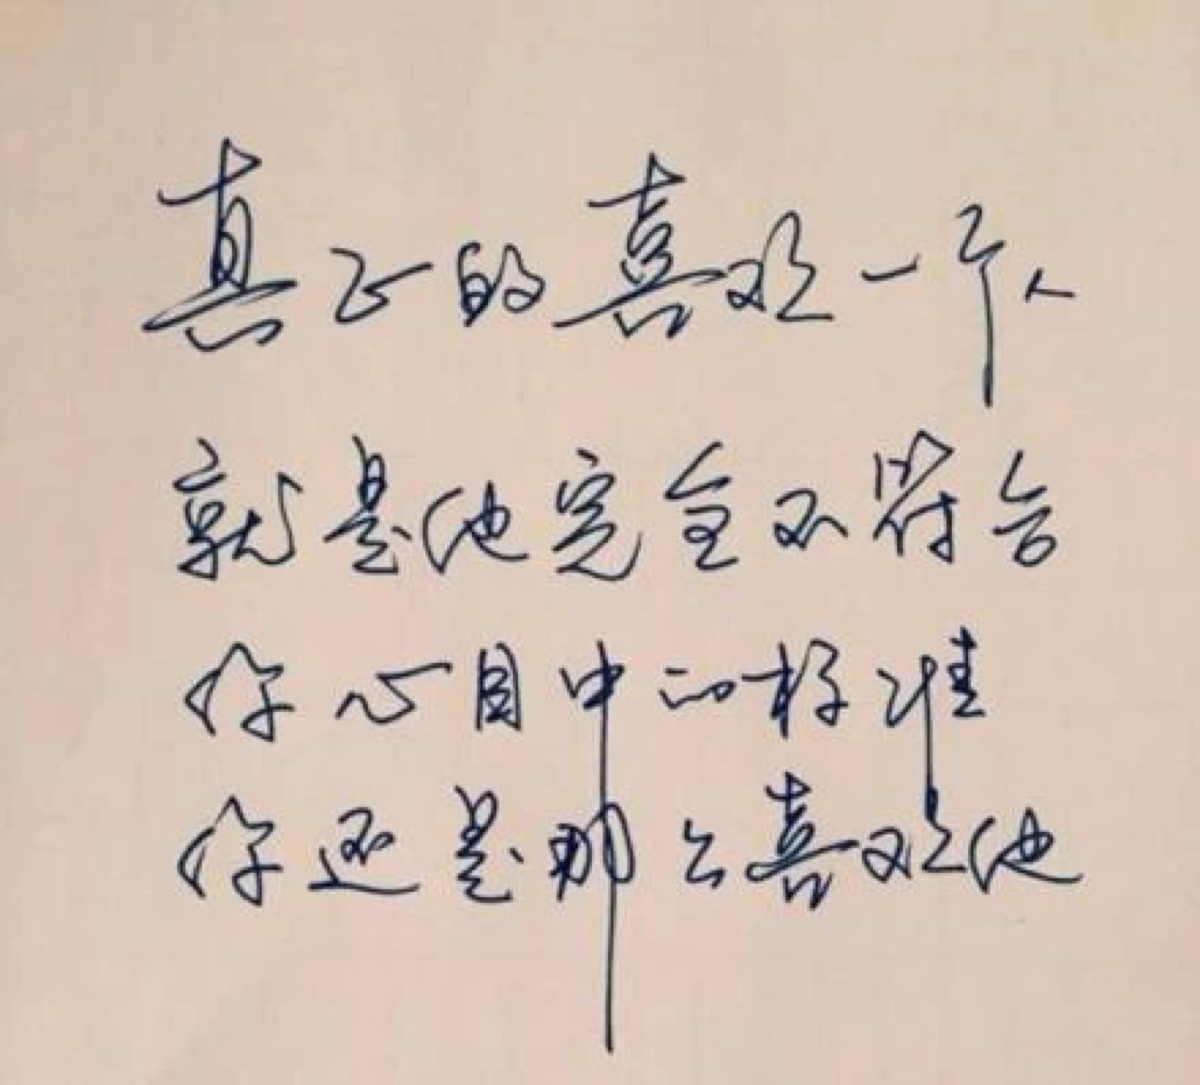 真正的喜欢一个人
就是他完全不符合
你心目中的标准
你还是那么喜欢他